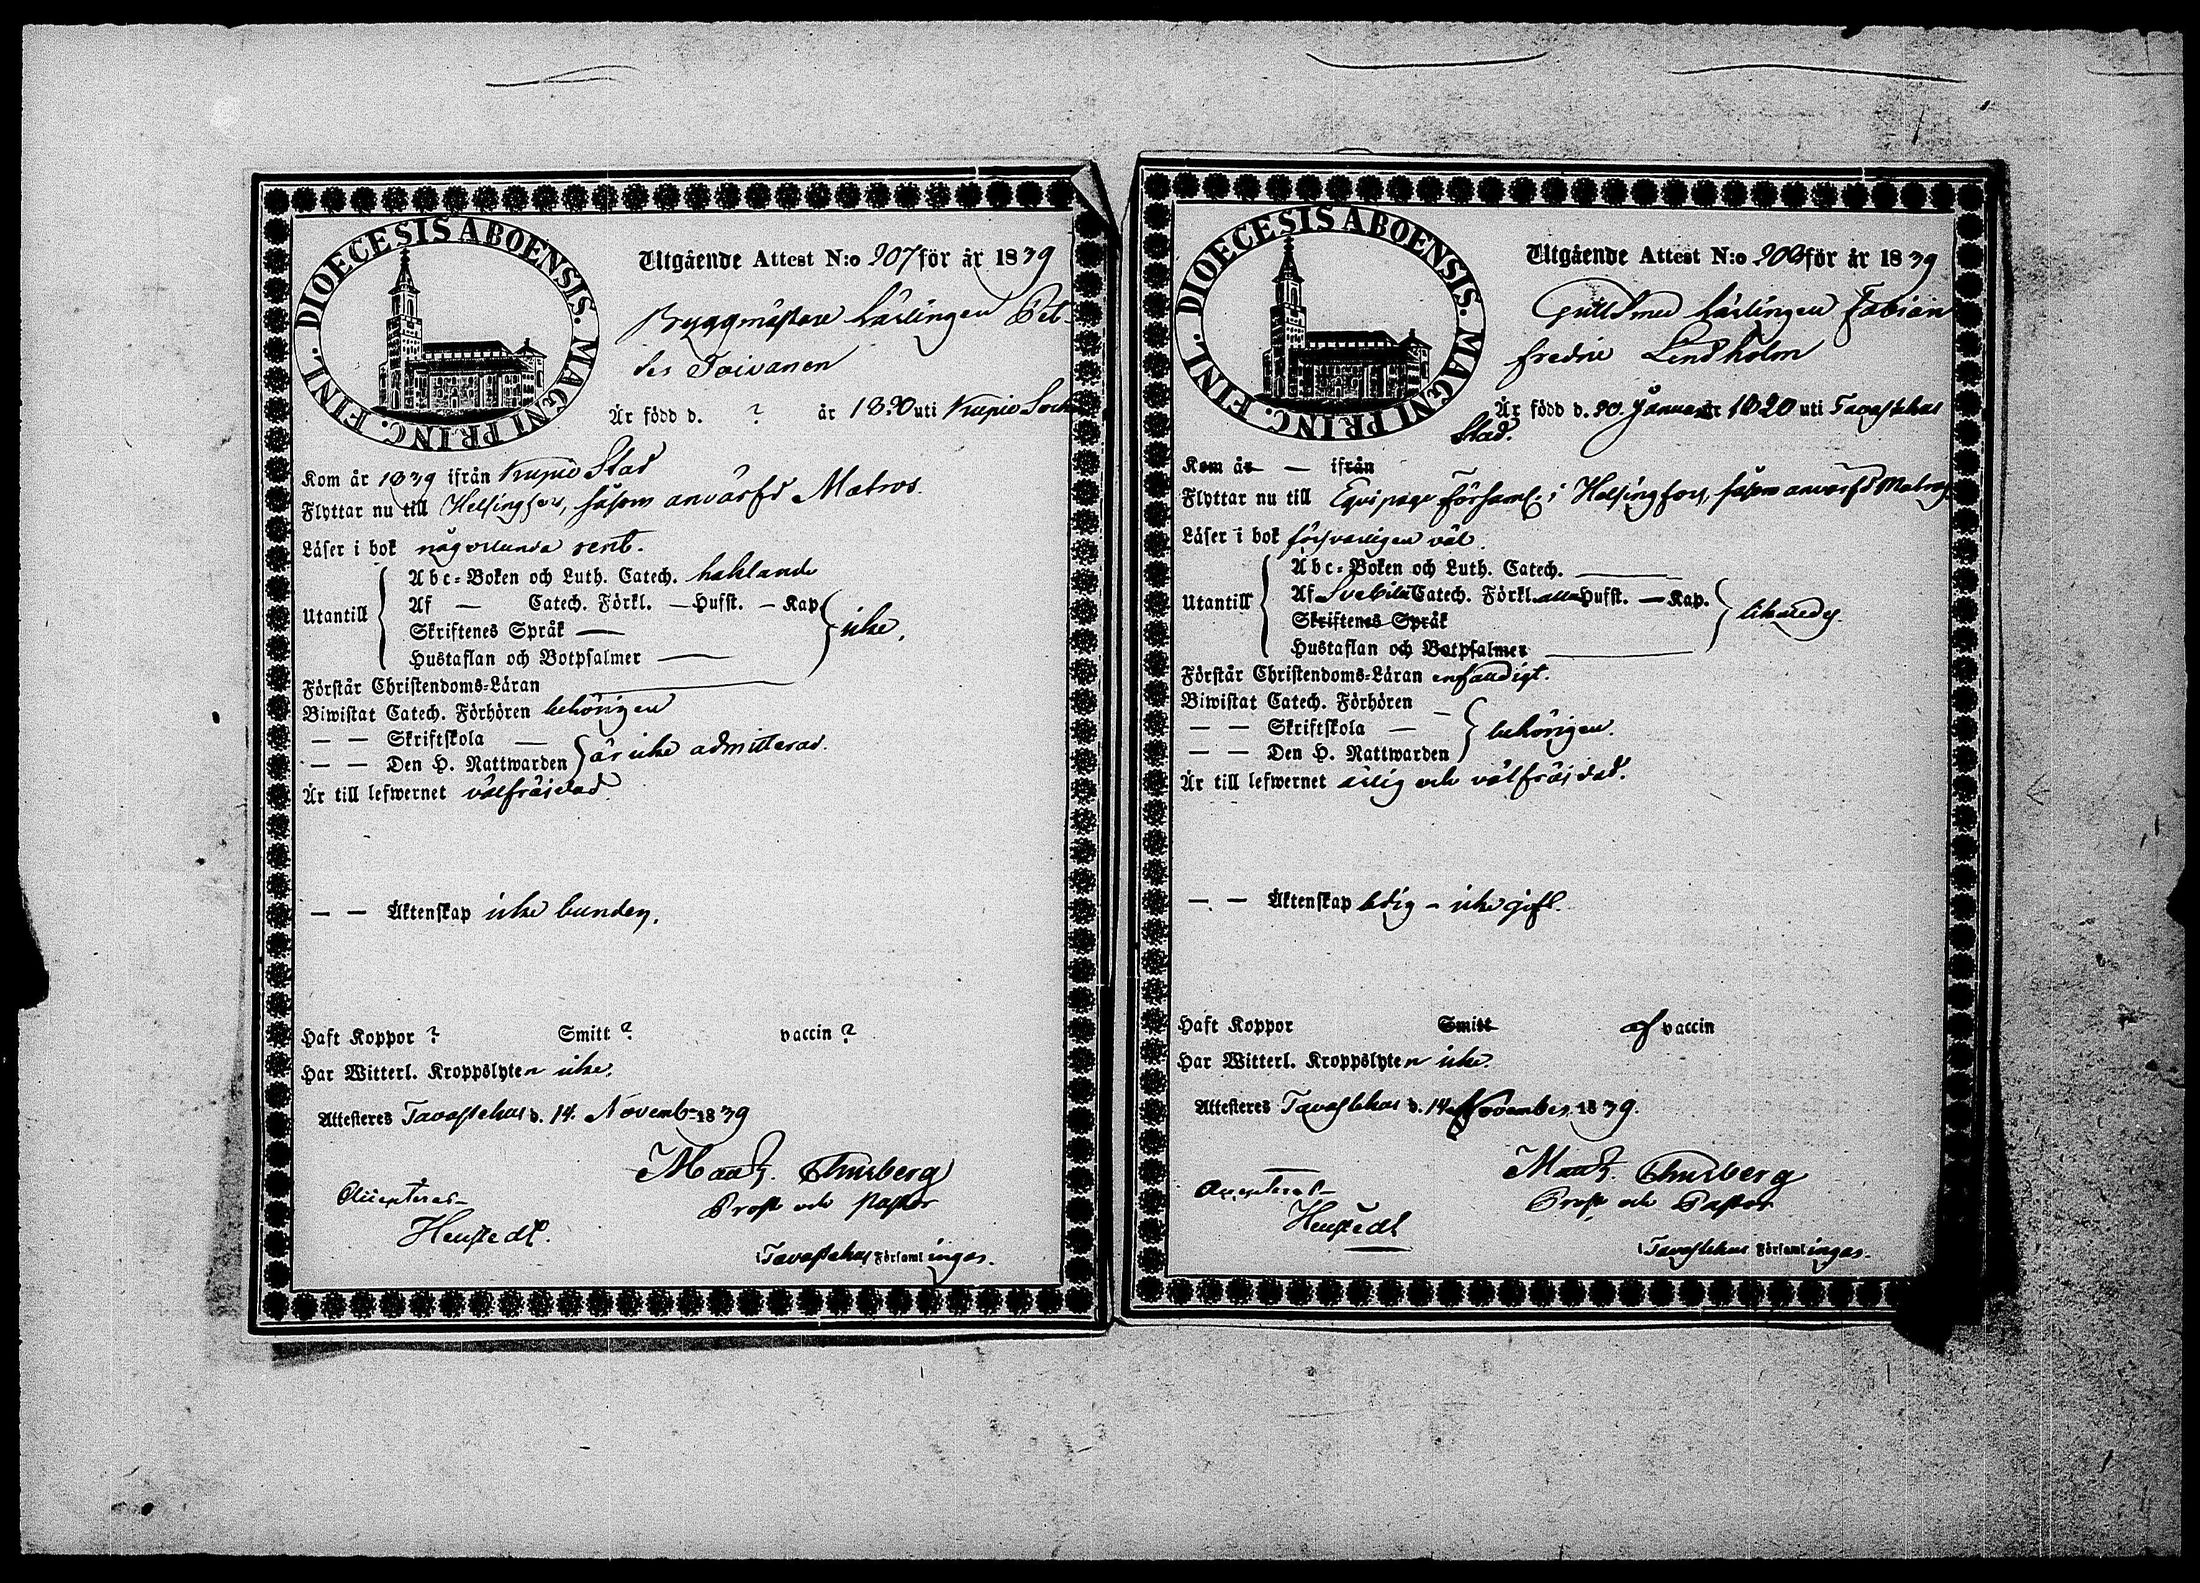 DIOECESIS ABOENSIS. MAGNI PRINC. FINL.
Utgående Attest N:o 207 för år 1839
Byggmästare Lärlingen Pet-
ter Toivanen
Är född d. ? år 1820 uti Kupio Sockn
Kom år 1839 ifrån Kupio Stad
Flyttar nu till Helsingfors, såsom anvärfd Matros.
Läser i bok någorlunda rent.
Utantill
Abc-Boken och Luth. Catech. haklande
Af — Catech. Förkl. — Hufst. — Kap.
Skriftenes Språk —
Hustaflan och Botpsalmer —
icke.
Förstår Christendoms-Läran
Biwistat Catech. Förhören behörigen
— — Skriftskola —
— — Den H. Nattwarden
är icke admitterad.
Är till lefwernet välfräjdad
— — Äktenskap icke bunden.
Haft Koppor ? Smitt ? vaccin ?
Har Witterl. Kroppslyten icke.
Attesteres Tavastehus d. 14. Novemb. 1839
Matth. Thurberg
Prost och Pastor
Accepteras
Heustedt.
i Tavastehus Församlingar.
DIOECESIS ABOENSIS. MAGNI PRINC. FINL.
Utgående Attest N:o 208 för år 1839
Gullsmed Lärlingen Fabian
Fredric Lindholm
Är född d. 20 Januari år 1820 uti Tavastehus
Stad.
Kom år — ifrån
Flyttar nu till Equipage Församl. i Helsingfors, såsom anvärfd Matros
Läser i bok försvarligen väl.
Utantill
Abc-Boken och Luth. Catech. —
Af Svebilii Catech. Förkl. alla Hufst. — Kap.
Skriftenes Språk
Hustaflan och Botpsalmer —
likaledes.
Förstår Christendoms-Läran enfaldigt.
Biwistat Catech. Förhören —
— — Skriftskola —
— — Den H. Nattwarden
behörigen.
Är till lefwernet ärlig och välfräjdad.
— — Äktenskap ledig – icke gift.
Haft Koppor Smitt af vaccin
Har Witterl. Kroppslyten icke.
Attesteres Tavastehus d. 14 November 1839.
Matth. Thurberg
Prost och Pastor
Accepteras
Heustedt
i Tavastehus Församlingar.